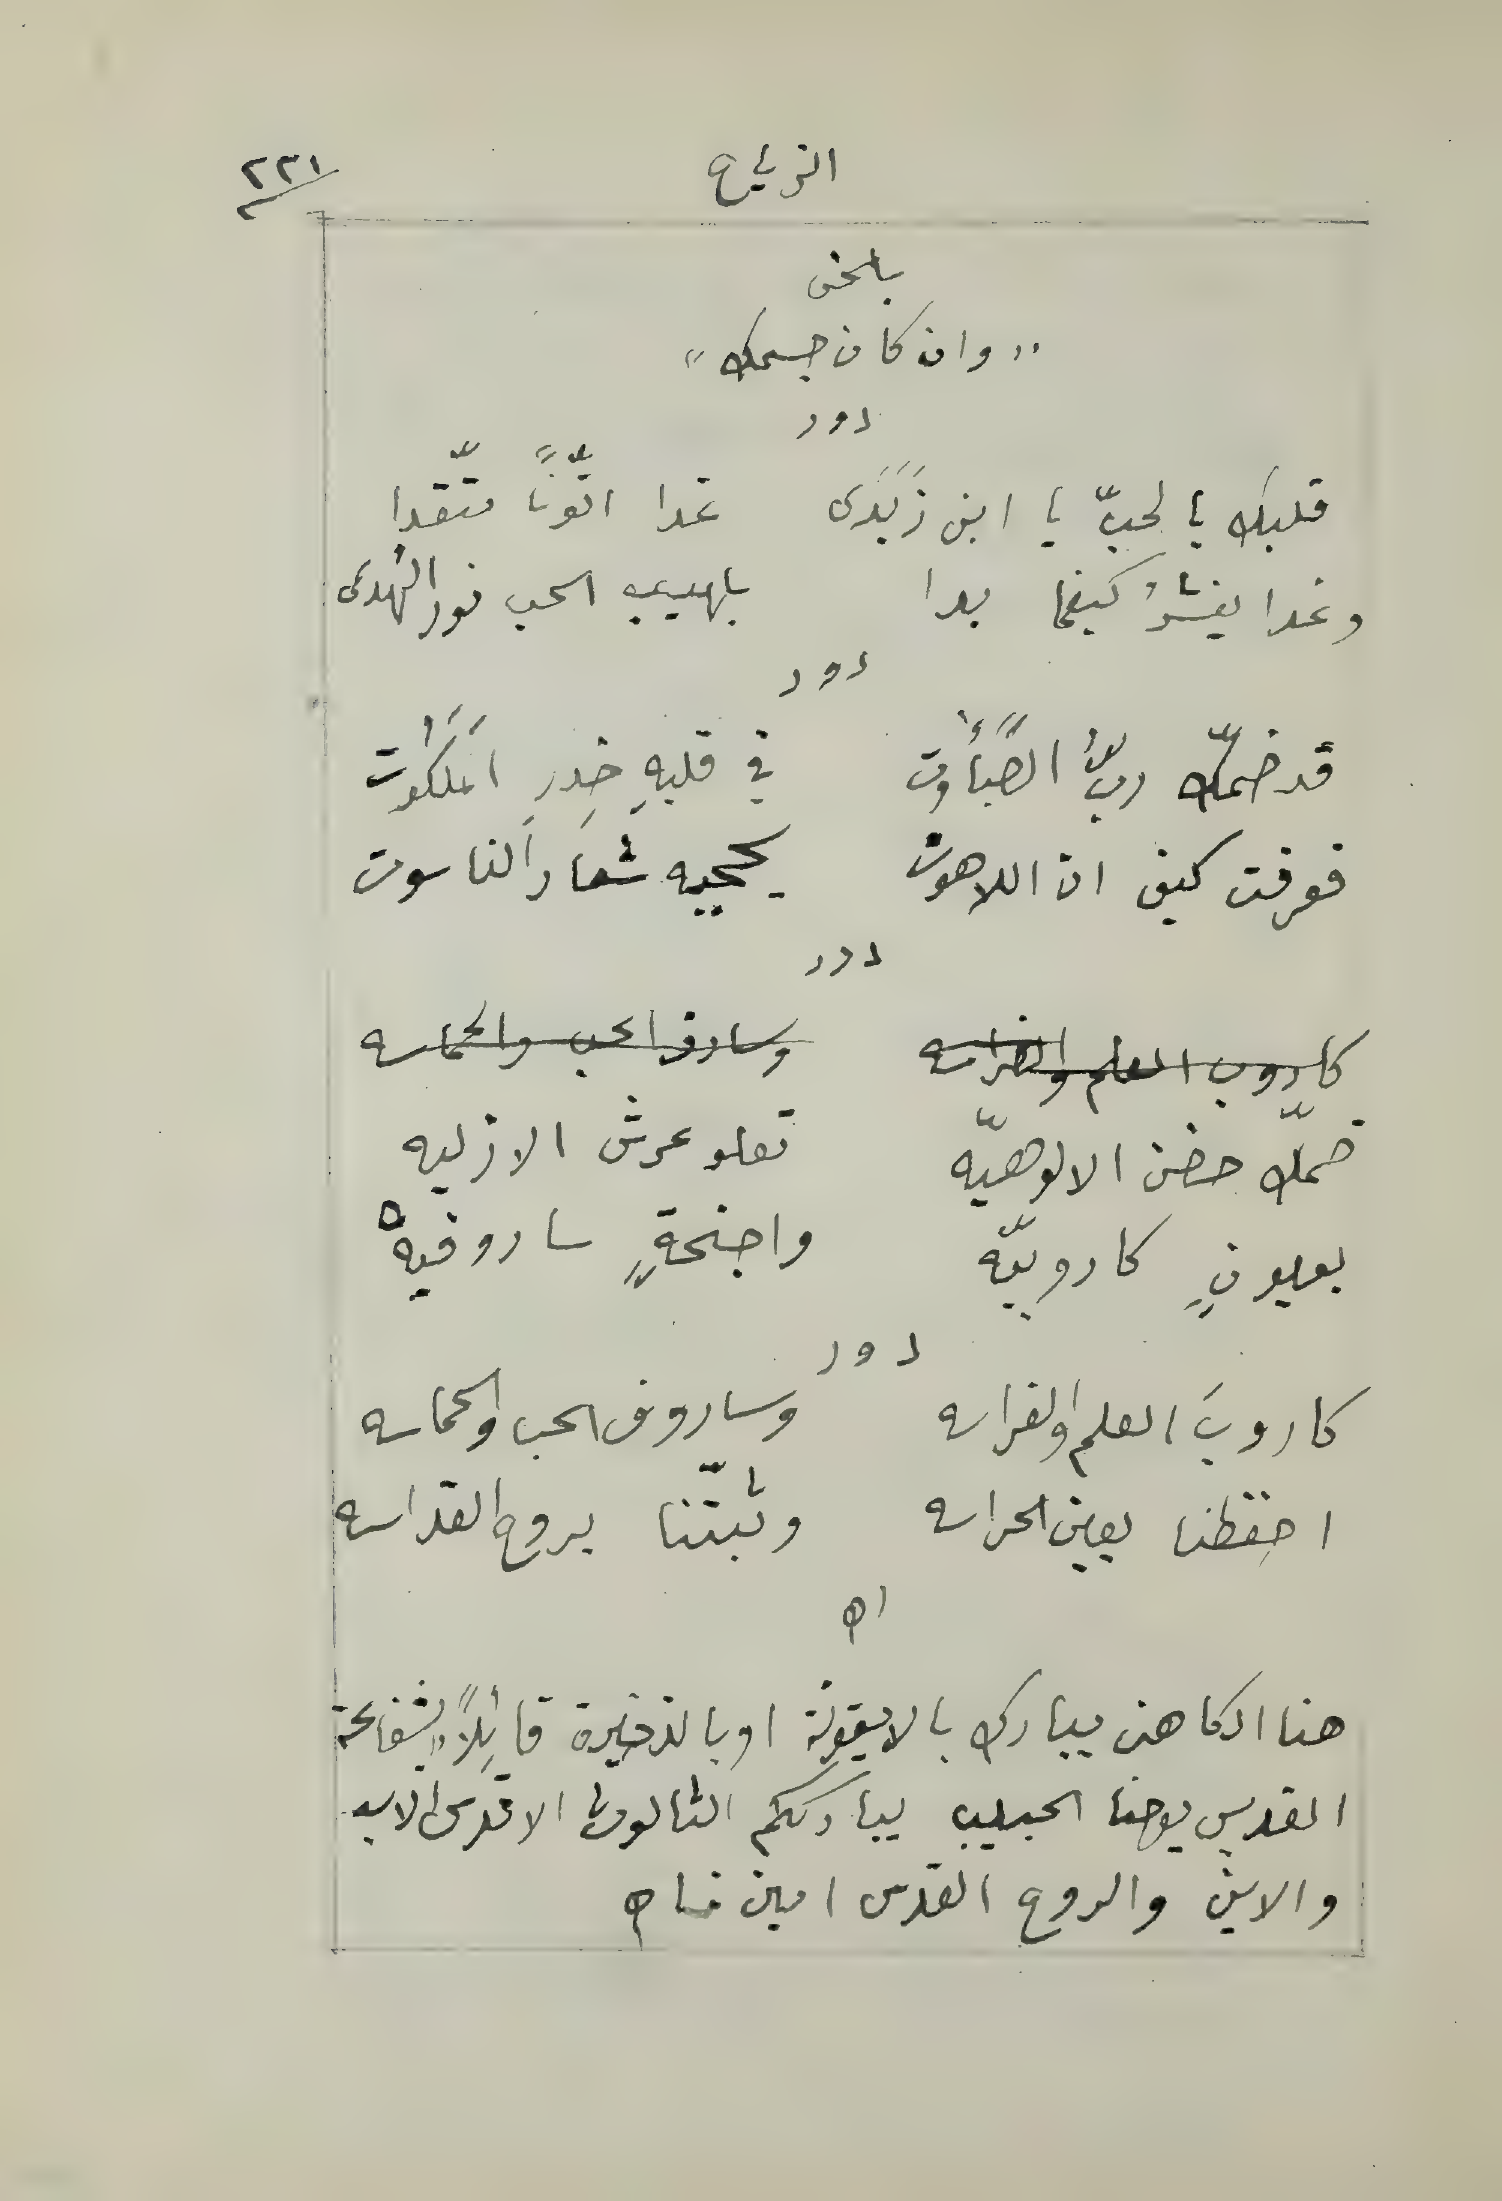 الزياح ٢٣١
بلحن
"وان كان جسمك"
دور
قلبك بالحبّ يا ابن زَبَدَى غدا اتّونًا متّقدا
وغدا يفشوُ كيفما بدا بلهيب الحب نور الهُدى
دور
قد ضمّك ربُّ الصَبأُوت في قلبهِ خِدرِ المَلَكُوت
فعرفت كيف ان اللاهوت يحجبه شعار الناسوت
دور
كاروب العلم والفراسه وساروف الحب والحماسه
ضمّك حضن الالوهيّه تعلو عرش الازليه
بعيونٍ كاروبيّه واجنحةٍ ساروفيه
دور
كاروبَ العلم والفراسه وساروف الحب والحماسه
احفِظنا بعين الحراسه وثبّتنا بروح القداسه
اه
هنا الكاهن يبارك بالايقونة او بالذخيرة قائِلاً "بشفاعة
القديس يوحنا الحبيب يبارككم الثالوث الاقدس الاب
والابن والروح القدس امين تمام